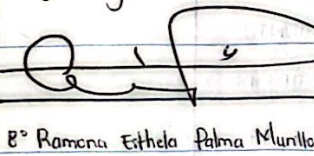 B° Ramona Eithela Palma Murillo